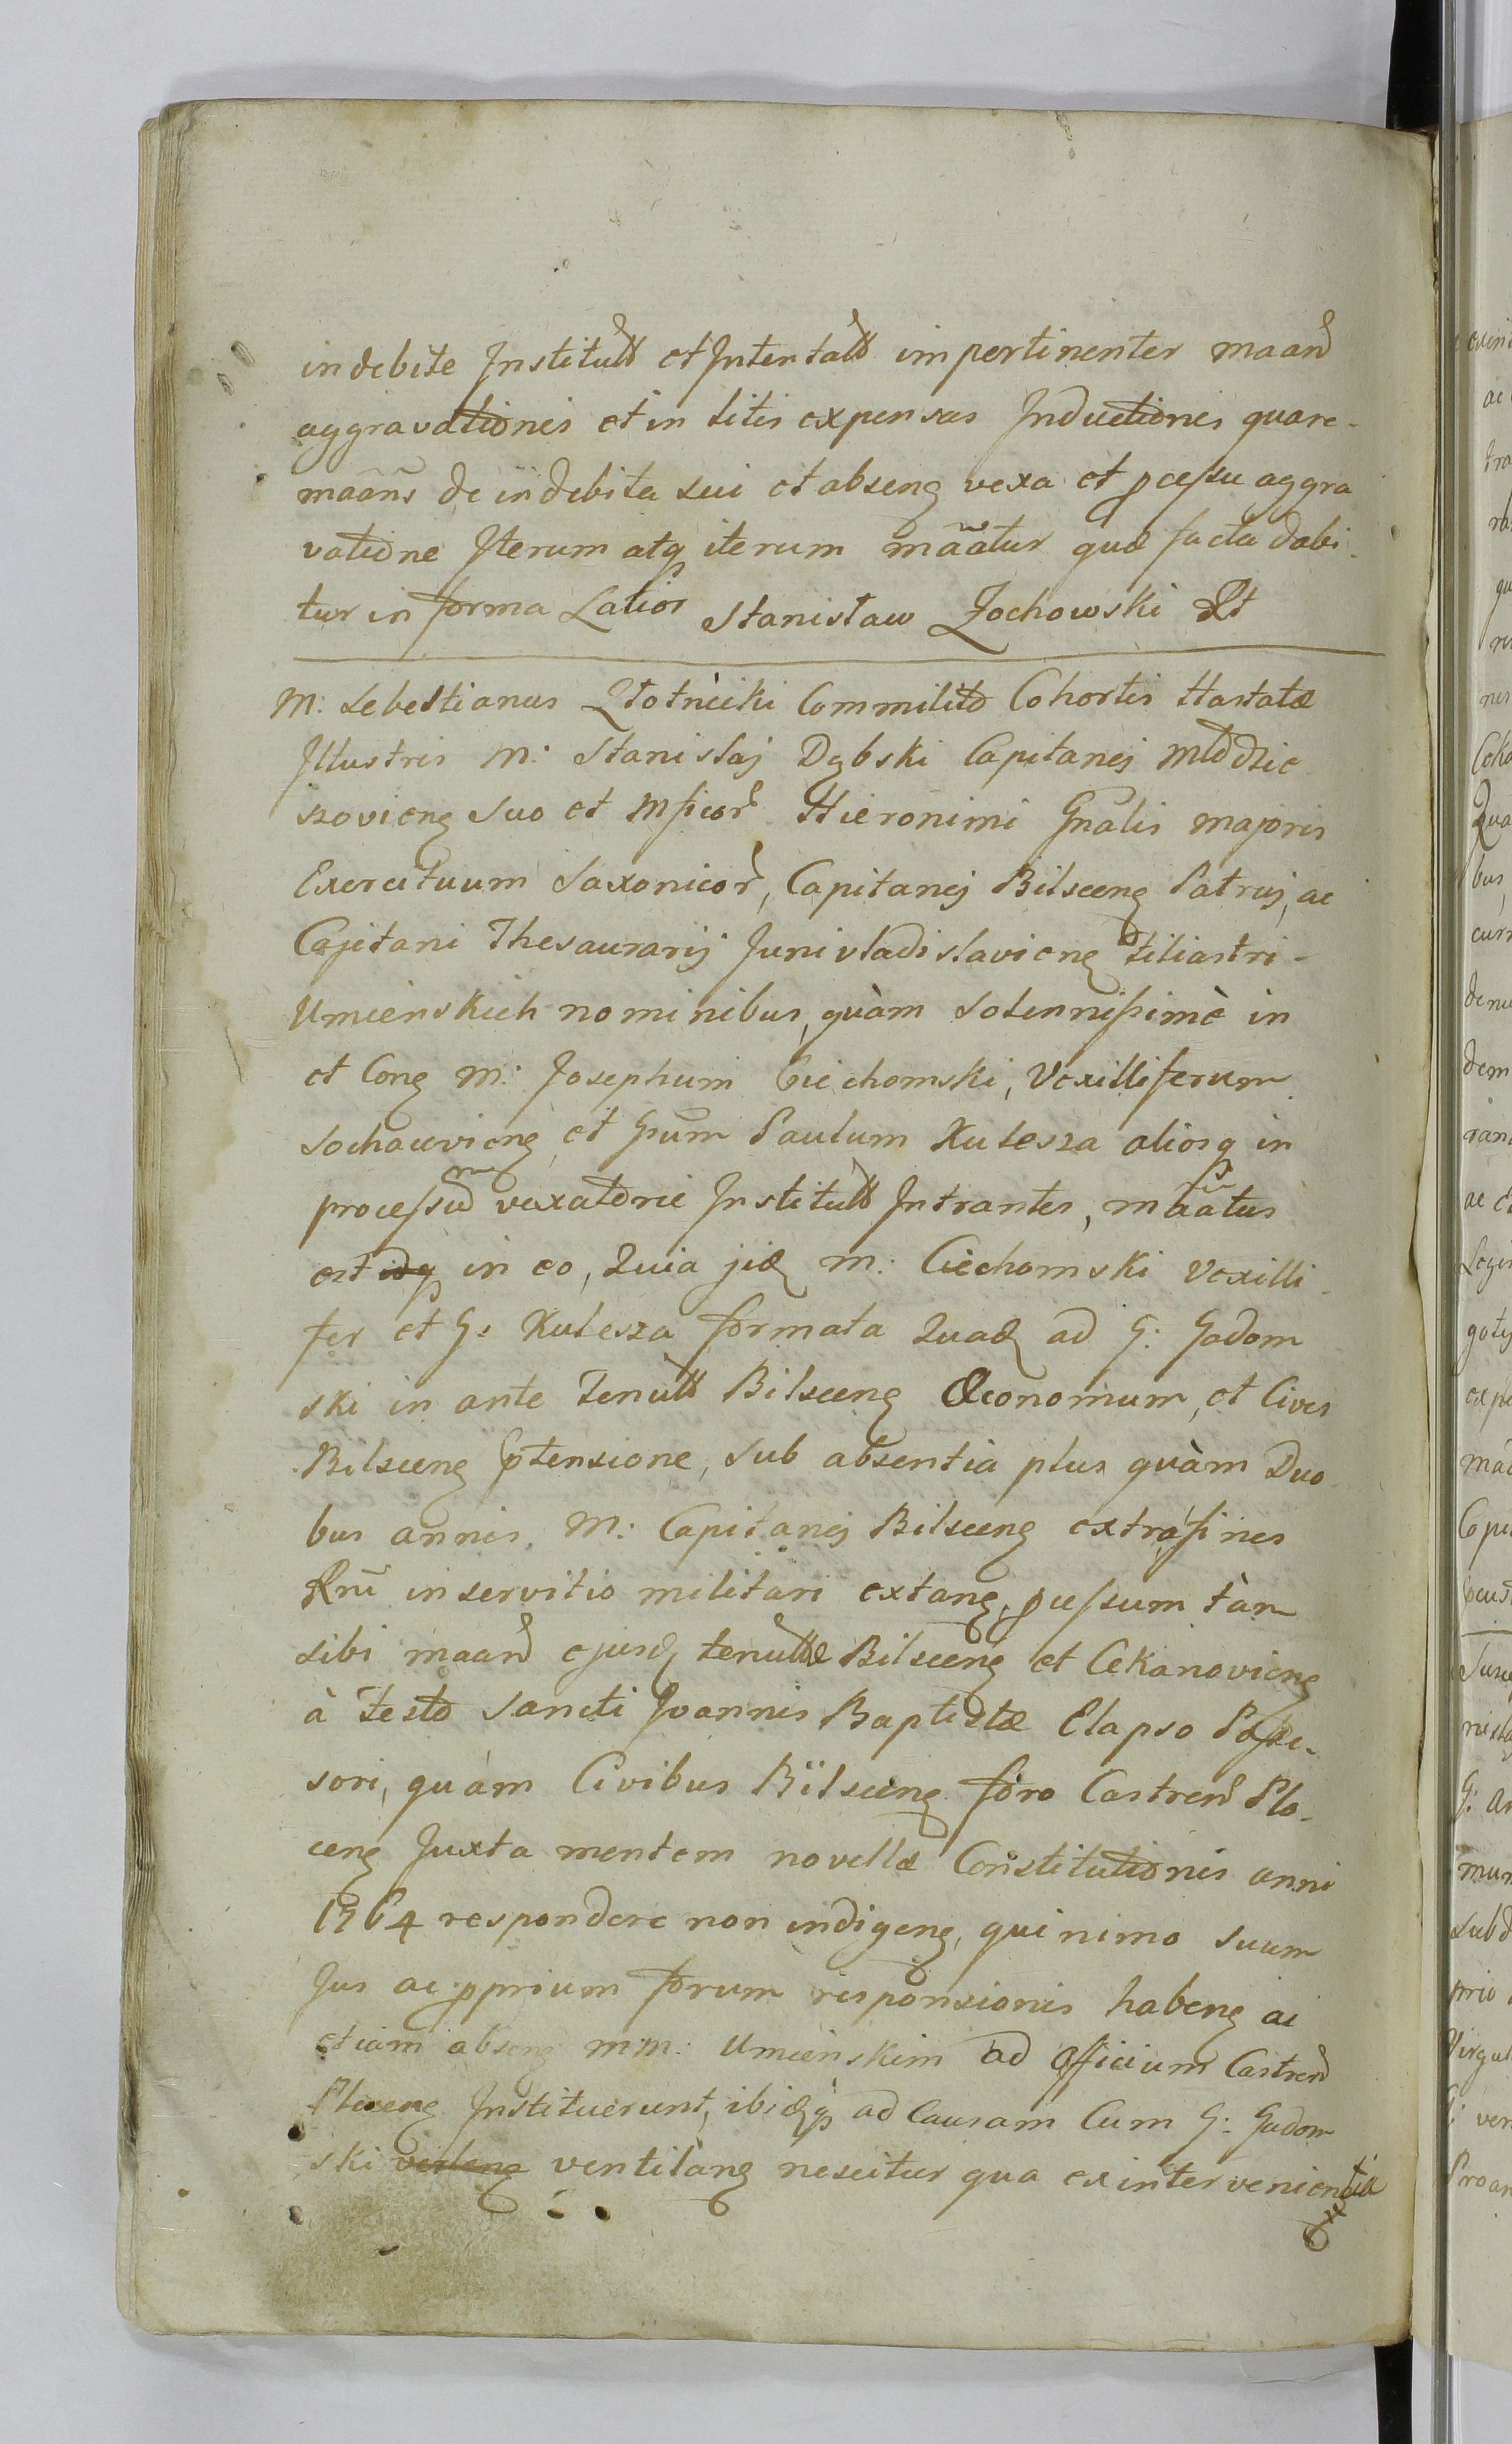 indebite Institutt et Intentatt impertinenter maand
aggravationis et in litis expensas Inductionis quare-
maans de indebita sui et abseng vexa et pcessu aggra
vatione Iterum atq iterum maatur quæ facta dabi-
tur in forma Latior Stanisław Żochowski Rt
M: Sebestianus Złotnicki Commilito Cohortis Hastatæ
Illustris M: Stanislaj Dąbski Capitanej Młodzie
szovieng suo et Mficor Hieronimi Gnalis majoris
Exercituum Saxonicor, Capitanej Bilsceng Patruj, ac
Capitani Thesaurarij Junivladislavieng filiastri-
Umienskich nominibus, quàm solennissimè in
et Cong M: Josephum Ciechomski, Vexilliferum
Sochauvieng et Gsum Paulum Kulesza aliosq in
processum vexatorie Institutt Intrantes, maatus
est idq in eo, Quia ijdę M: Ciechomski Vexilli-
fer et G: Kulesza formata Quadę ad G: Gadom
ski in ante Tenutt Bilsceng Œconomum, et Cives
Bilsceng ptensione, sub absentia plus quàm Duo
bus annis, M: Capitanej Bilsceng extra fines
Rni in servitio militari extang, pcessum tàm
sibi maand ejusdę tenuttæ Bilsceng et Cekanovieng
à Festo Sancti Joannis Baptistæ Elapso Posse-
sori, quàm Civibus Bilsceng foro Castrens Plo-
ceng Juxta mentem novellæ Constitutionis anni
1764 respondere non indigeng, quinimo suum
Jus ac pprium forum responsionis habeng ac
etiam abseng MM: Umienskim ad Officium Castrens
Ploceng Instituerunt, ibidęq ad Causam Cum G: Gadom
ski verteng ventilang nescitur qua ex intervenientia